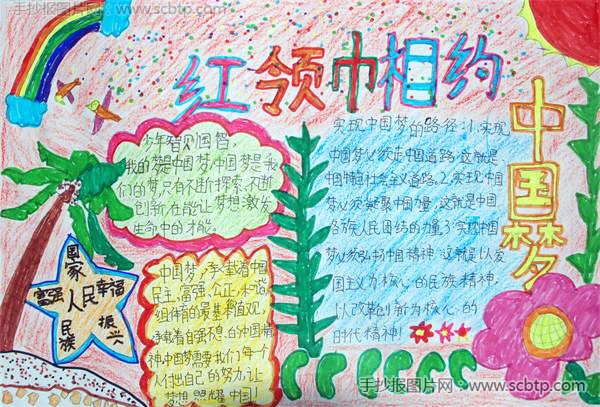 手抄报图片网：www.scbtp.com
红领巾相约
中国梦
少年智则国智，
我的梦是中国梦，中国梦是我
们的梦，只有不断探索，不断
创新，在能让梦想激发
生命中的才能。
实现中国梦的路径：1、实现
中国梦必须走中国道路，这就是
中国特色社会主义道路。2、实现中国
梦必须凝聚中国力量，这就是中国
各族人民团结的力量。3、实现中国
梦必须弘扬中国精神，这就是以爱
国主义为核心的民族精神，
以改革创新为核心的
时代精神！
国家
富强
人民幸福
民族
振兴
中国梦，承载着中国
民主、富强、公正、和谐
组体着的最基本值观，
承载着自强不息的中国精
神中国梦需要我们每个
人付出自己的努力，让
梦想照耀中国！
手抄报图片网：www.scbtp.com